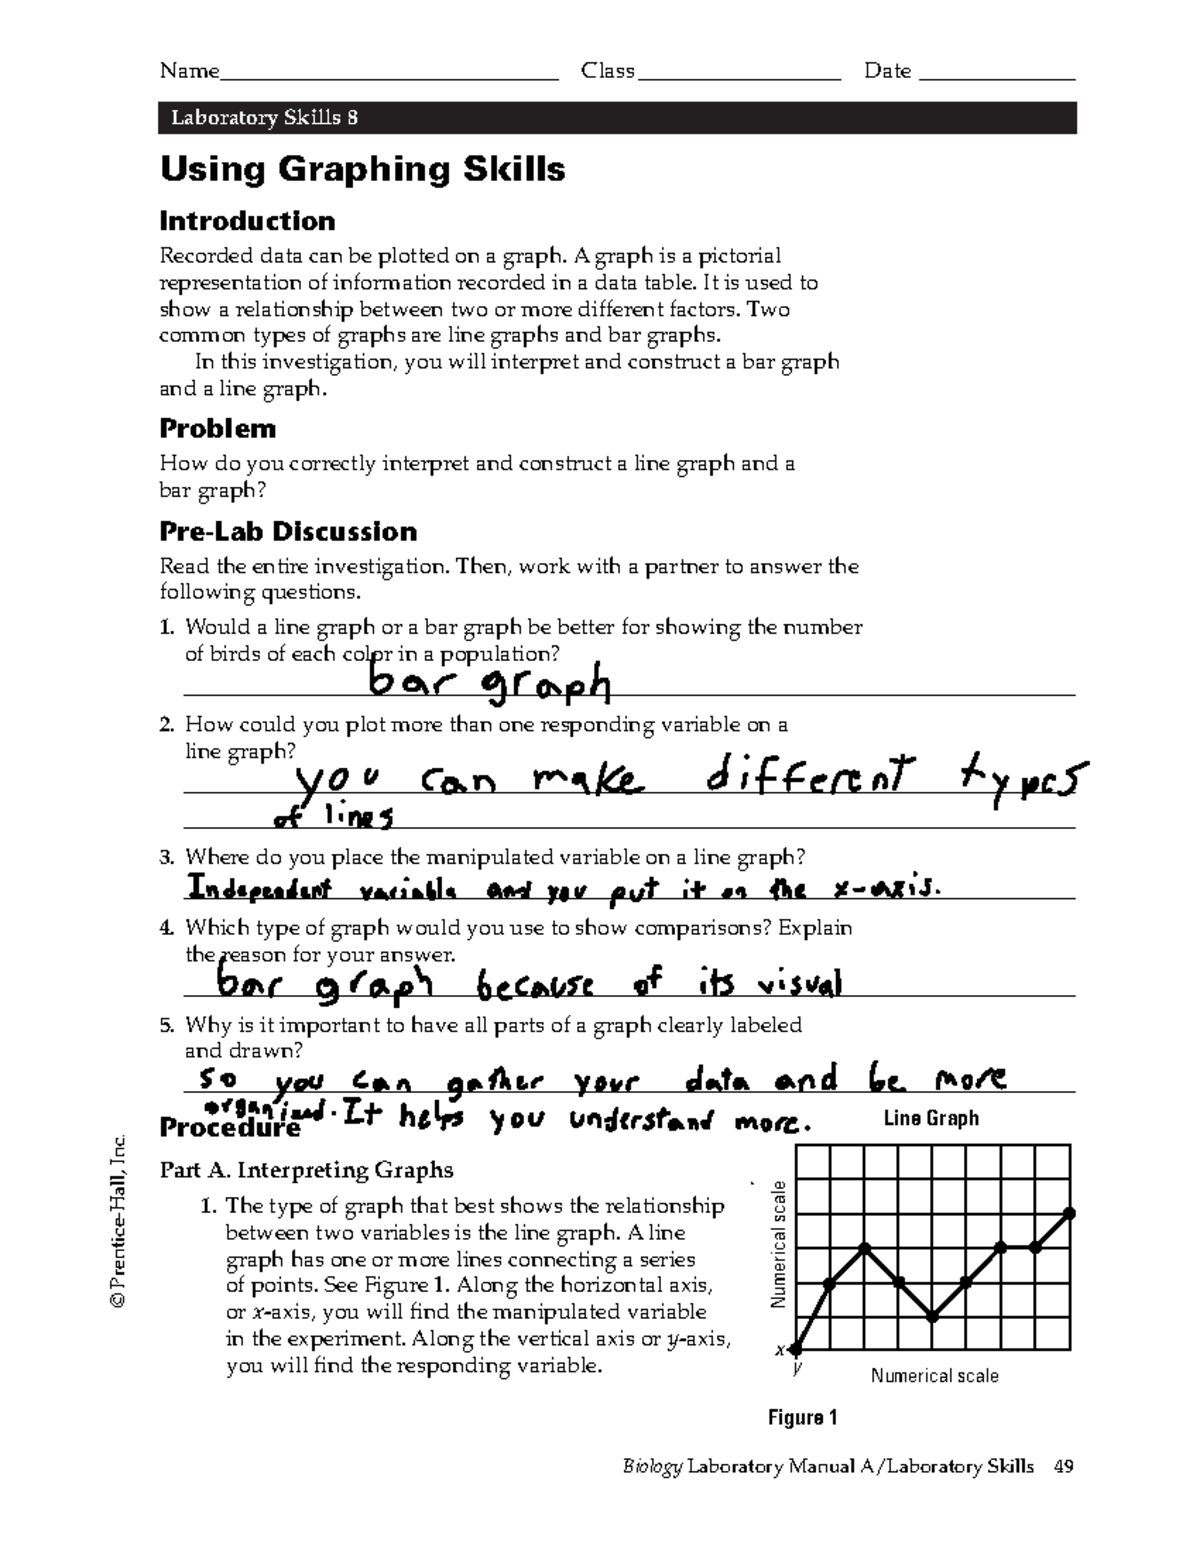 Name Class Date
Laboratory Skills 8
Using Graphing Skills
Introduction
Recorded data can be plotted on a graph. A graph is a pictorial
representation of information recorded in a data table. It is used to
show a relationship between two or more different factors. Two
common types of graphs are line graphs and bar graphs.
In this investigation, you will interpret and construct a bar graph
and a line graph.
Problem
How do you correctly interpret and construct a line graph and a
bar graph?
Pre-Lab Discussion
Read the entire investigation. Then, work with a partner to answer the
following questions.
1. Would a line graph or a bar graph be better for showing the number
of birds of each color in a population?
bar graph
2. How could you plot more than one responding variable on a
line graph?
you can make different types
of lines
3. Where do you place the manipulated variable on a line graph?
Independent variable and you put it on the x-axis.
4. Which type of graph would you use to show comparisons? Explain
the reason for your answer.
bar graph because of its visual
5. Why is it important to have all parts of a graph clearly labeled
and drawn?
so you can gather your data and be more
organized. It helps you understand more.
Procedure
Part A. Interpreting Graphs
1. The type of graph that best shows the relationship
between two variables is the line graph. A line
graph has one or more lines connecting a series
of points. See Figure 1. Along the horizontal axis,
or x-axis, you will find the manipulated variable
in the experiment. Along the vertical axis or y-axis,
you will find the responding variable.
Line Graph
Numerical scale
x
y
Numerical scale
Figure 1
© Prentice-Hall, Inc.
Biology Laboratory Manual A/Laboratory Skills 49